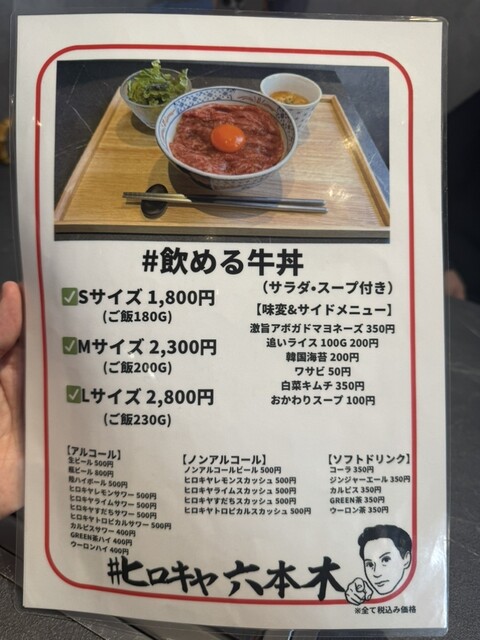 #飲める牛丼
(サラダ・スープ付き)
✅Sサイズ 1,800円
(ご飯180G)
✅Mサイズ 2,300円
(ご飯200G)
✅Lサイズ 2,800円
(ご飯230G)
【味変&サイドメニュー】
激旨アボガドマヨネーズ 350円
追いライス 100G 200円
韓国海苔 200円
ワサビ 50円
白菜キムチ 350円
おかわりスープ 100円
【アルコール】
生ビール 500円
瓶ビール 800円
陸ハイボール 500円
ヒロキヤレモンサワー 500円
ヒロキヤライムサワー 500円
ヒロキヤすだちサワー 500円
ヒロキヤトロピカルサワー 500円
カルピスサワー 400円
GREEN茶ハイ 400円
ウーロンハイ 400円
【ノンアルコール】
ノンアルコールビール 500円
ヒロキヤレモンスカッシュ 500円
ヒロキヤライムスカッシュ 500円
ヒロキヤすだちスカッシュ 500円
ヒロキヤトロピカルスカッシュ 500円
【ソフトドリンク】
コーラ 350円
ジンジャーエール 350円
カルピス 350円
GREEN茶 350円
ウーロン茶 350円
#ヒロキヤ 六本木
※全て税込み価格